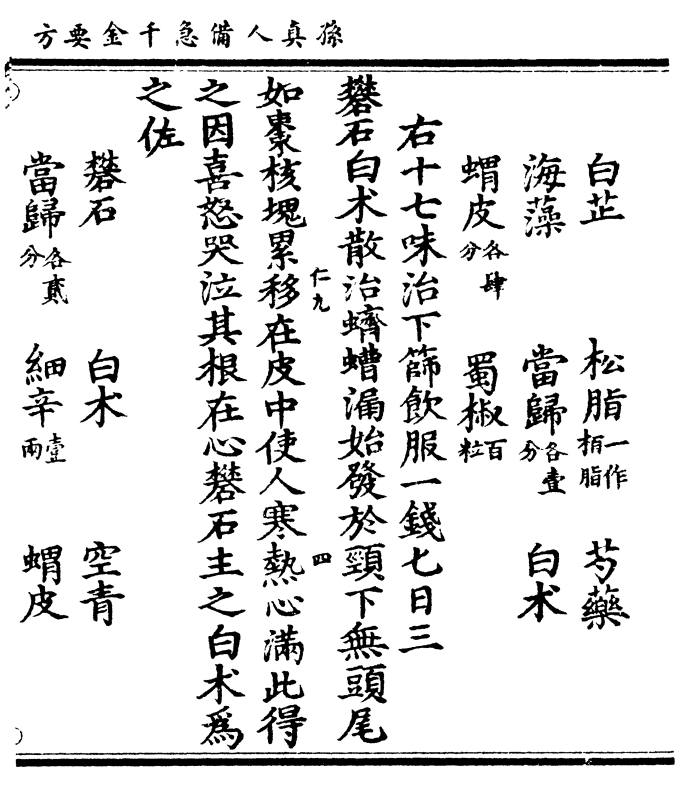 孫真人備急千金要方
白芷 松脂一作栢脂 芍藥
海藻 當歸各壹分 白朮
蝟皮各肆分 蜀椒百粒
右十七味治下篩飲服一錢七日三
礬石白朮散治蠐螬漏始發於頸下無頭尾
仁九 四
如棗核塊累移在皮中使人寒熱心滿此得
之因喜怒哭泣其根在心礬石主之白朮爲
之佐
礬石 白朮 空青
當歸各貳分 細辛壹兩 蝟皮